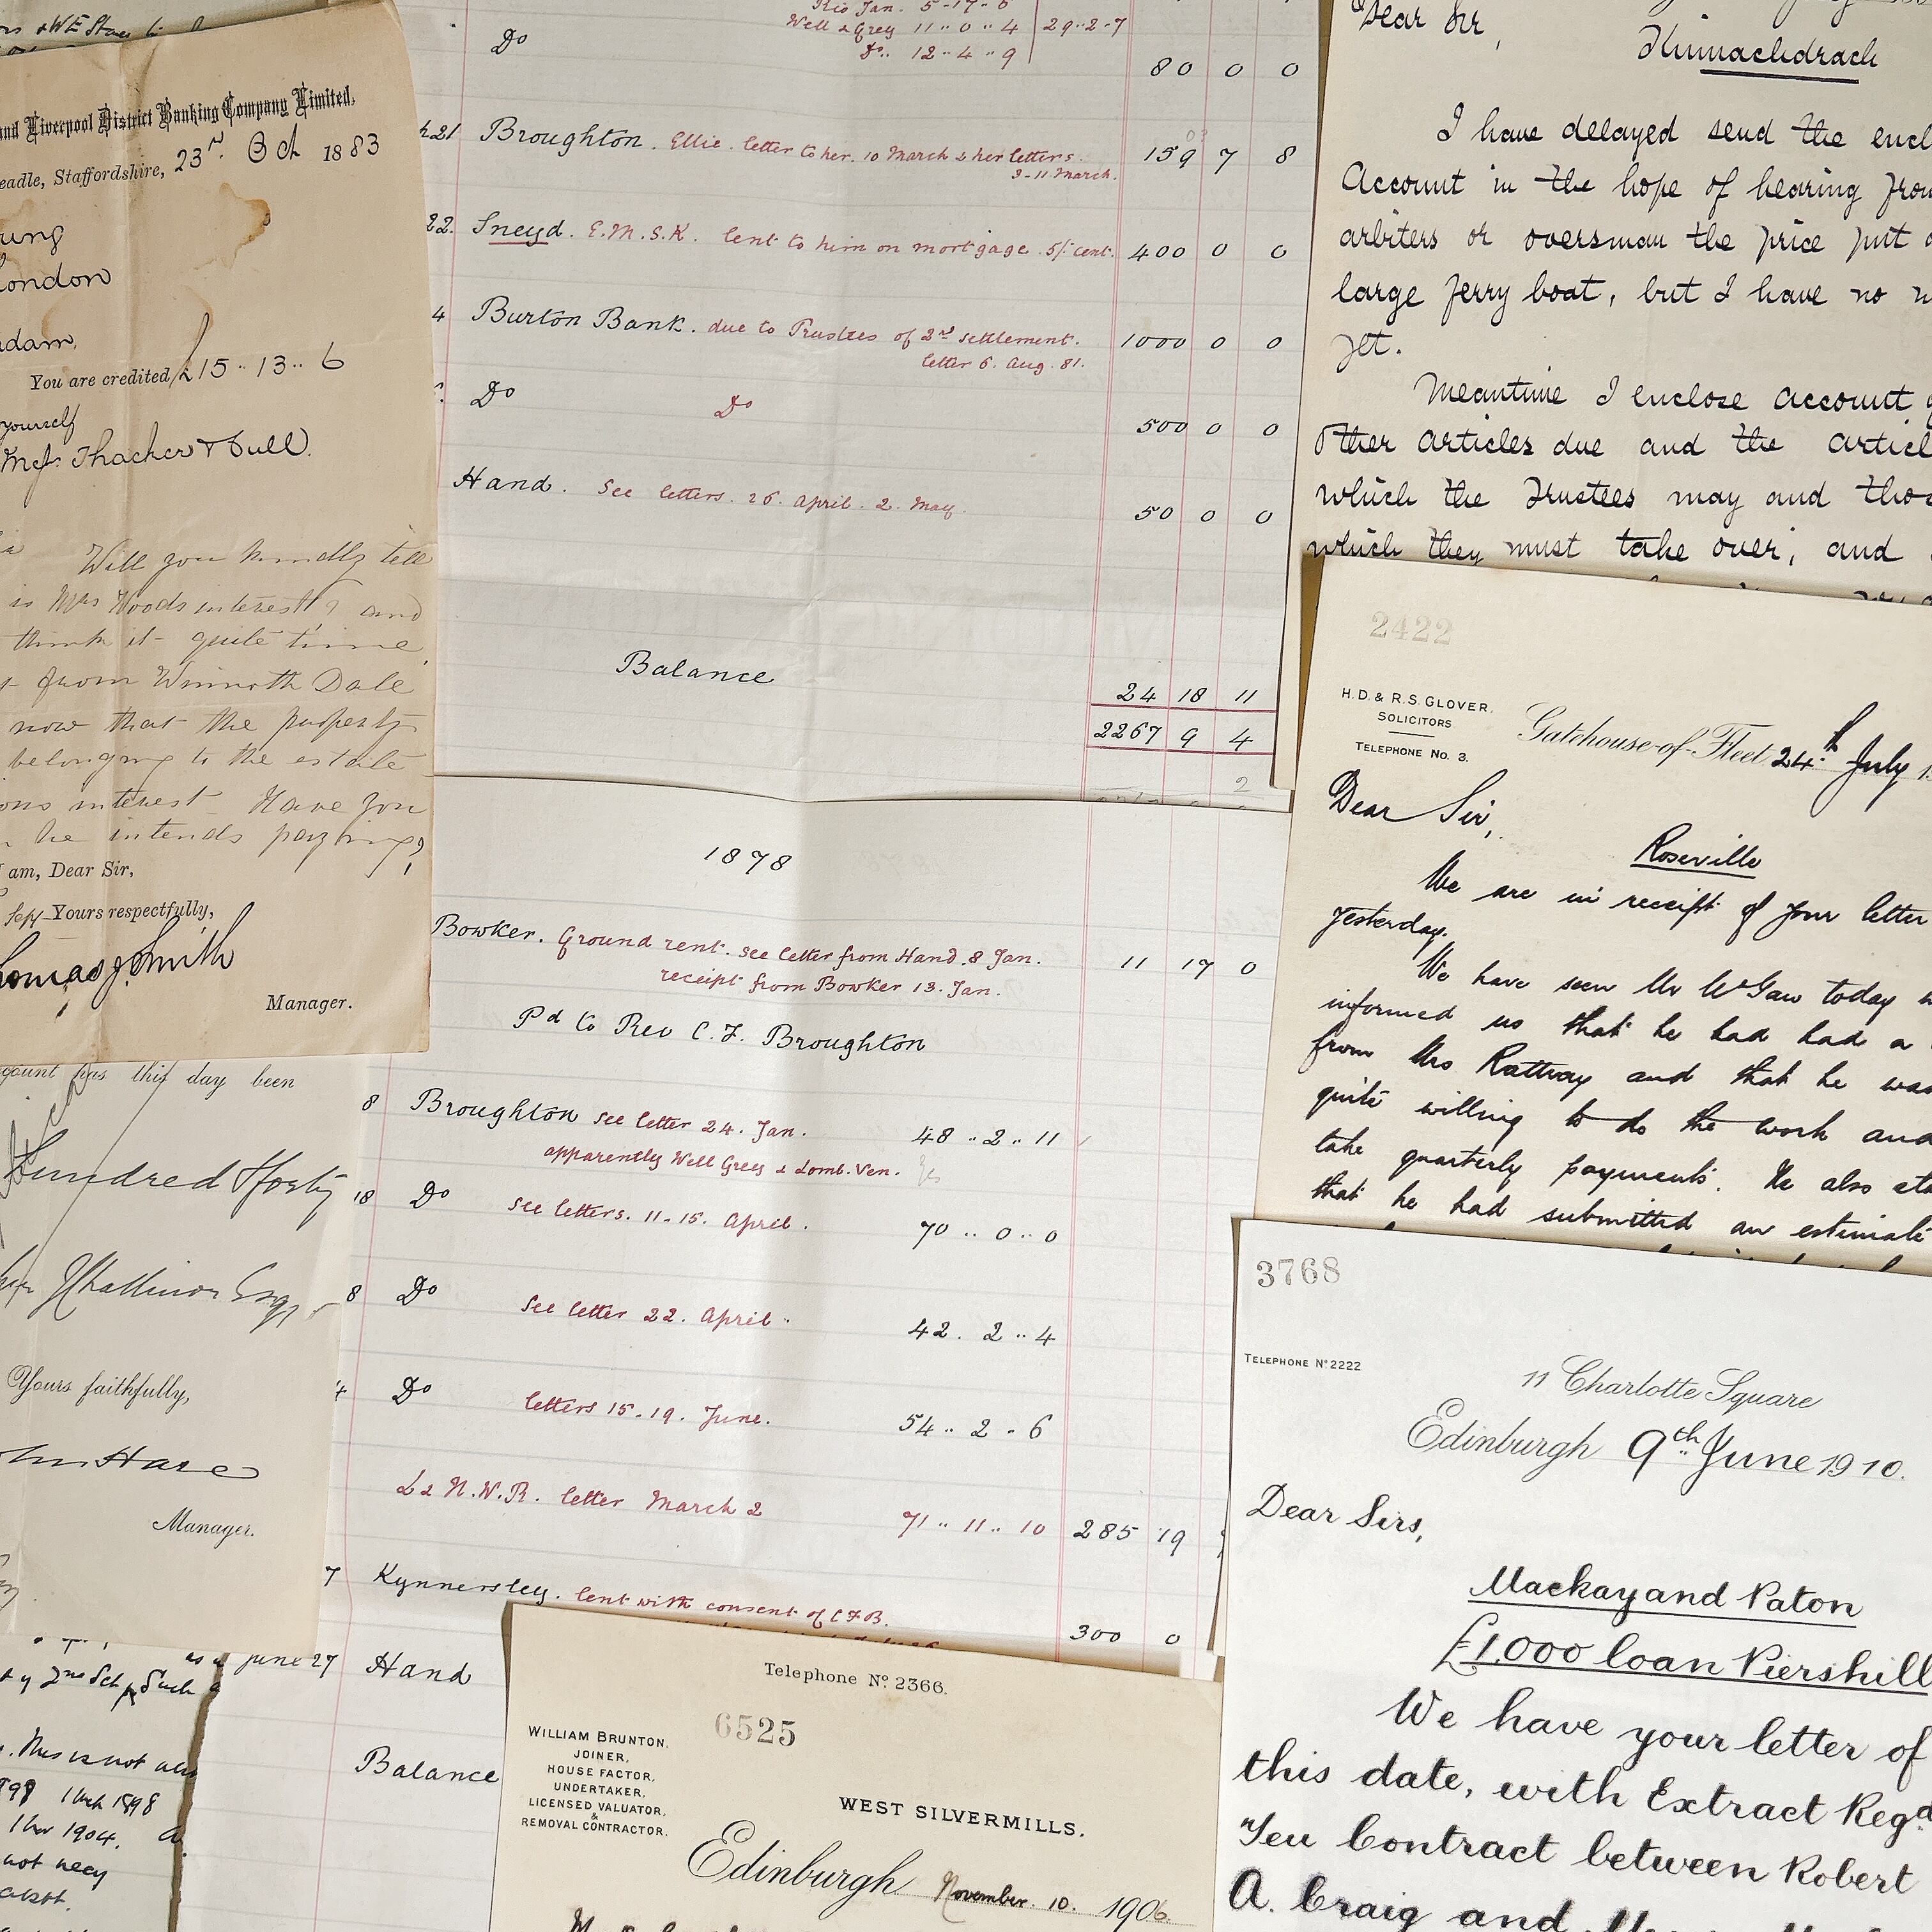 and Liverpool District Banking Company Limited.
eadle, Staffordshire, 23rd. Oct 1883
ondon
adam,
You are credited £15 .. 13 .. 6
yourself
Will you kindly tell
is Mrs Woods interest? and
think it quite time
from Winnoth Dale
now that the property
belonging to the estate
ons interest Have you
he intends paying?
I am, Dear Sir,
Yours respectfully,
homas J. Smith
Manager.
count has this day been
Hundred & forty
Esq
Yours faithfully,
ohn Hare
Manager.
This is not
1898
1904.
not
Rio Jan. 5-17-6
Well & Grey 11 .. 0 .. 4 29 .. 2 - 7
Do .. 12 .. 4 .. 9
Do 80 0 0
h 21 Broughton. Ellie. letter to her. 10 March & her letters. 159 7 8
3-11 March.
22. Sneyd. E.M.S.K. lent to him on mortgage. 5/. cent. 400 0 0
4 Burton Bank. due to Trustees of 2nd settlement. 1000 0 0
letter 6. Aug. 81.
Do Do 500 0 0
Hand. See letters. 26. April. 2. May. 50 0 0
Balance 24 18 11
2267 9 4
2
1878
Bowker. Ground rent. see letter from Hand. 8 Jan. 11 17 0
receipt from Bowker 13. Jan.
Pd to Rev C. F. Broughton
8 Broughton see letter 24. Jan. 48 .. 2 .. 11
apparently Well Grey & Lomb. Ven. Yes
18 Do see letters. 11-15. April. 70 .. 0 .. 0
8 Do see letter 22. April. 42. 2 .. 4
4 Do letters 15-19. June. 54 .. 2 - 6
L & N.W.R. letter March 2 71 .. 11 .. 10 285 19
7 Kynnersley. lent with consent of CFB. 300 0
June 27 Hand
Balance
Dear Sir,
I have delayed send the encl
Account in the hope of hearing from
arbiters or oversman the price put
large ferry boat, but I have no
yet.
Meantime I enclose account
other articles due and the articl
which the Trustees may and thos
which they must take over, and
2422
H. D. & R. S. GLOVER,
SOLICITORS
TELEPHONE No. 3.
Gatehouse-of-Fleet 24th July 1
Dear Sir,
Roseville
We are in receipt of your letter
yesterday.
We have seen Mr McGaw today
informed us that he had had a
from Mrs Rattray and that he was
quite willing to do the work and
take quarterly payments. He also sta
that he had submitted an estimate
3768
TELEPHONE No 2222
11 Charlotte Square
Edinburgh 9th June 1910.
Dear Sirs,
Mackay and Paton
£1,000 loan Piershill
We have your letter of
this date, with Extract Regd
Feu Contract between Robert
A. Craig and
Telephone No. 2366.
6525
WILLIAM BRUNTON,
JOINER,
HOUSE FACTOR,
UNDERTAKER,
LICENSED VALUATOR,
&
REMOVAL CONTRACTOR.
WEST SILVERMILLS,
Edinburgh November. 10. 1906.